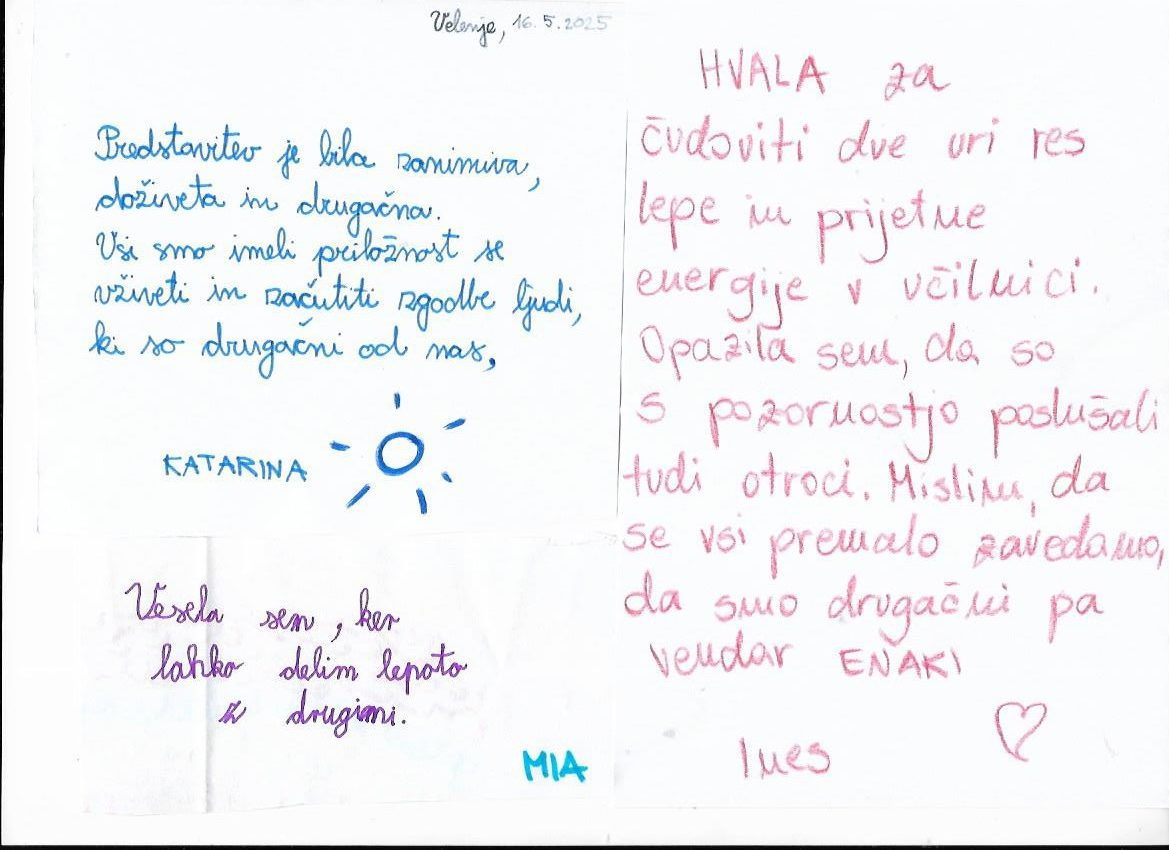 Velenje, 16. 5. 2025
Predstavitev je bila zanimiva,
doživeta in drugačna.
Vsi smo imeli priložnost se
vživeti in začutiti zgodbe ljudi,
ki so drugačni od nas,
KATARINA
Vesela sem, ker
lahko delim lepoto
z drugimi.
MIA
HVALA za
čudoviti dve uri res
lepe in prijetne
energije v učilnici.
Opazila sem, da so
s pozornostjo poslušali
tudi otroci. Mislim, da
se vsi premalo zavedamo,
da smo drugačni pa
vendar ENAKI
Ines